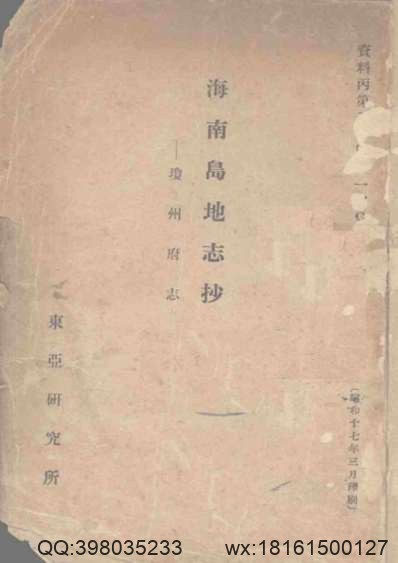 資料丙第
海南島地志抄
―瓊州府志
東亞研究所
（昭和十七年三月印刷）
QQ:398035233 wx:18161500127